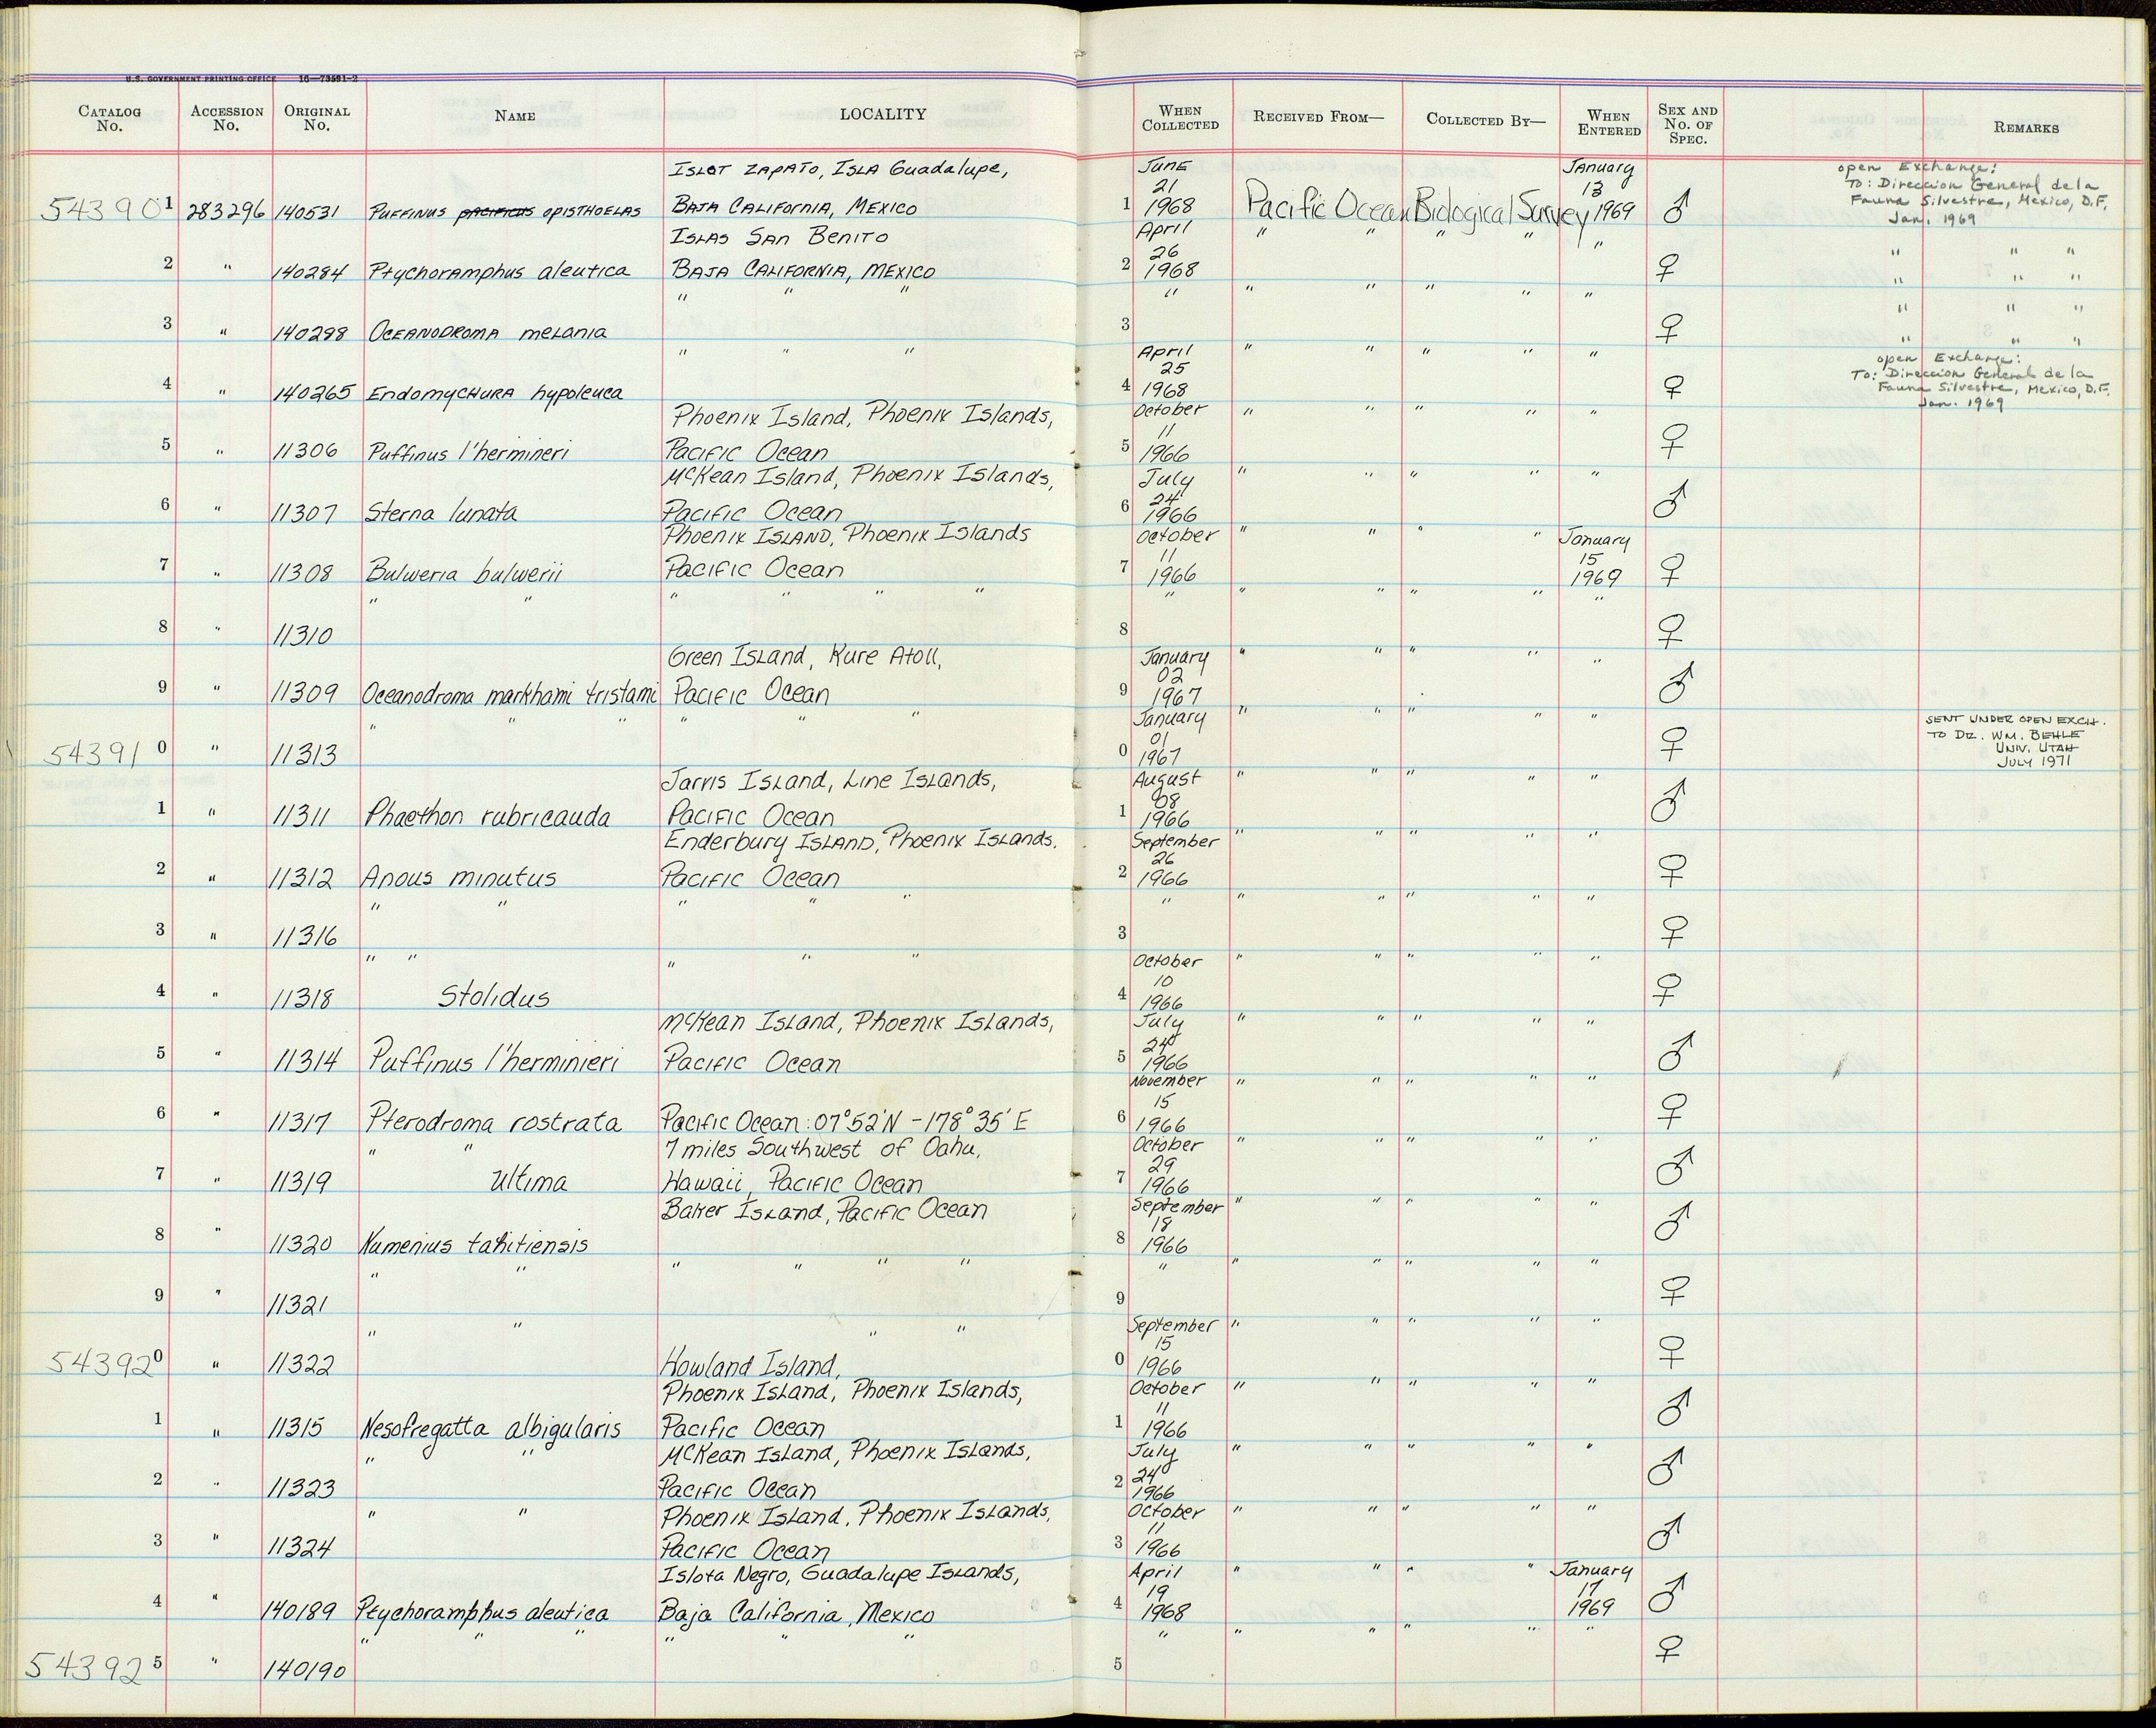 U.S. GOVERNMENT PRINTING OFFICE 16—73591-2
CATALOG No. ACCESSION No. ORIGINAL No. NAME LOCALITY WHEN COLLECTED RECEIVED FROM— COLLECTED BY— WHEN ENTERED SEX AND No. OF SPEC. REMARKS
Islot Zapato, Isla Guadalupe, June January open Exchange:
21 13 To: Direccion General de la
543901 283296 140531 Puffinus pacificus opisthoelas Baja California, Mexico 1 1968 Pacific Ocean Biological Survey 1969 ♂ Fauna Silvestre, Mexico, D.F.
Jan. 1969
Islas San Benito April " " " " "
26 " " "
2 " 140284 Ptychoramphus aleutica Baja California, Mexico 2 1968 ♀ " " "
" " " " " " " " "
3 " 140298 Oceanodroma melania 3 ♀ " " "
" " " April " " " " " " " "
25 open Exchange:
4 " 140265 Endomychura hypoleuca 4 1968 ♀ To: Direccion General de la
Fauna Silvestre, Mexico, D.F.
Jan. 1969
Phoenix Island, Phoenix Islands, October " " " " "
11
5 " 11306 Puffinus l'hermineri Pacific Ocean 5 1966 ♀
McKean Island, Phoenix Islands, July " " " " "
24
6 " 11307 Sterna lunata Pacific Ocean 6 1966 ♂
Phoenix Island, Phoenix Islands October " " " " January
11 15
7 " 11308 Bulweria bulwerii Pacific Ocean 7 1966 1969 ♀
" " " " " " " " " " " "
8 " 11310 8 ♀
Green Island, Kure Atoll, January " " " " "
02
9 " 11309 Oceanodroma markhami tristami Pacific Ocean 9 1967 ♂
" " " " " " January " " " " " SENT UNDER OPEN EXCH.
01 TO DR. WM. BEHLE
543910 " 11313 0 1967 ♀ UNIV. UTAH
JULY 1971
Jarvis Island, Line Islands, August " " " " "
08
1 " 11311 Phaethon rubricauda Pacific Ocean 1 1966 ♂
Enderbury Island, Phoenix Islands. September " " " " "
26
2 " 11312 Anous minutus Pacific Ocean 2 1966 ♀
" " " " " " " " " " "
3 " 11316 3 ♀
" " " " " October " " " " "
10
4 " 11318 Stolidus 4 1966 ♀
McKean Island, Phoenix Islands, July " " " " "
24
5 " 11314 Puffinus l'herminieri Pacific Ocean 5 1966 ♂
November " " " " "
15
6 " 11317 Pterodroma rostrata Pacific Ocean: 07°52'N - 178°35'E 6 1966 ♀
" " 7 miles Southwest of Oahu, October " " " " "
29
7 " 11319 Ultima Hawaii, Pacific Ocean 7 1966 ♂
Baker Island, Pacific Ocean September " " " " "
18
8 " 11320 Numenius tahitiensis 8 1966 ♂
" " " " " " " " " " " "
9 " 11321 9 ♀
" " " " September " " " " "
15
543920 " 11322 Howland Island, 0 1966 ♀
Phoenix Island, Phoenix Islands, October " " " " "
11
1 " 11315 Nesofregatta albigularis Pacific Ocean 1 1966 ♂
" " McKean Island, Phoenix Islands, July " " " " "
24
2 " 11323 Pacific Ocean 2 1966 ♂
" " Phoenix Island, Phoenix Islands, October " " " " "
11
3 " 11324 Pacific Ocean 3 1966 ♂
Islota Negro, Guadalupe Islands, April " " " " January
19 17
4 " 140189 Ptychoramphus aleutica Baja California, Mexico 4 1968 1969 ♂
" " " " " " " " " " " "
543925 " 140190 5 ♀